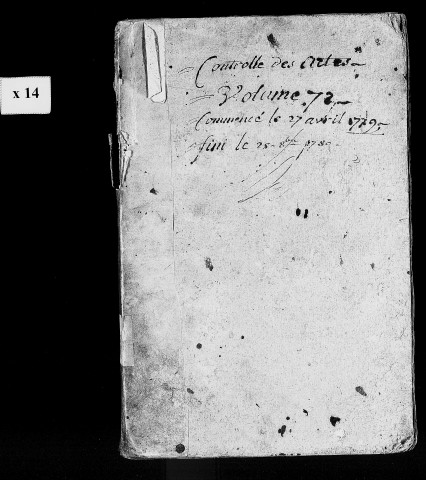 x 14
Controlle des Actes
Volume 72
Commencé le 27 avril 1789
fini le 25 8bre